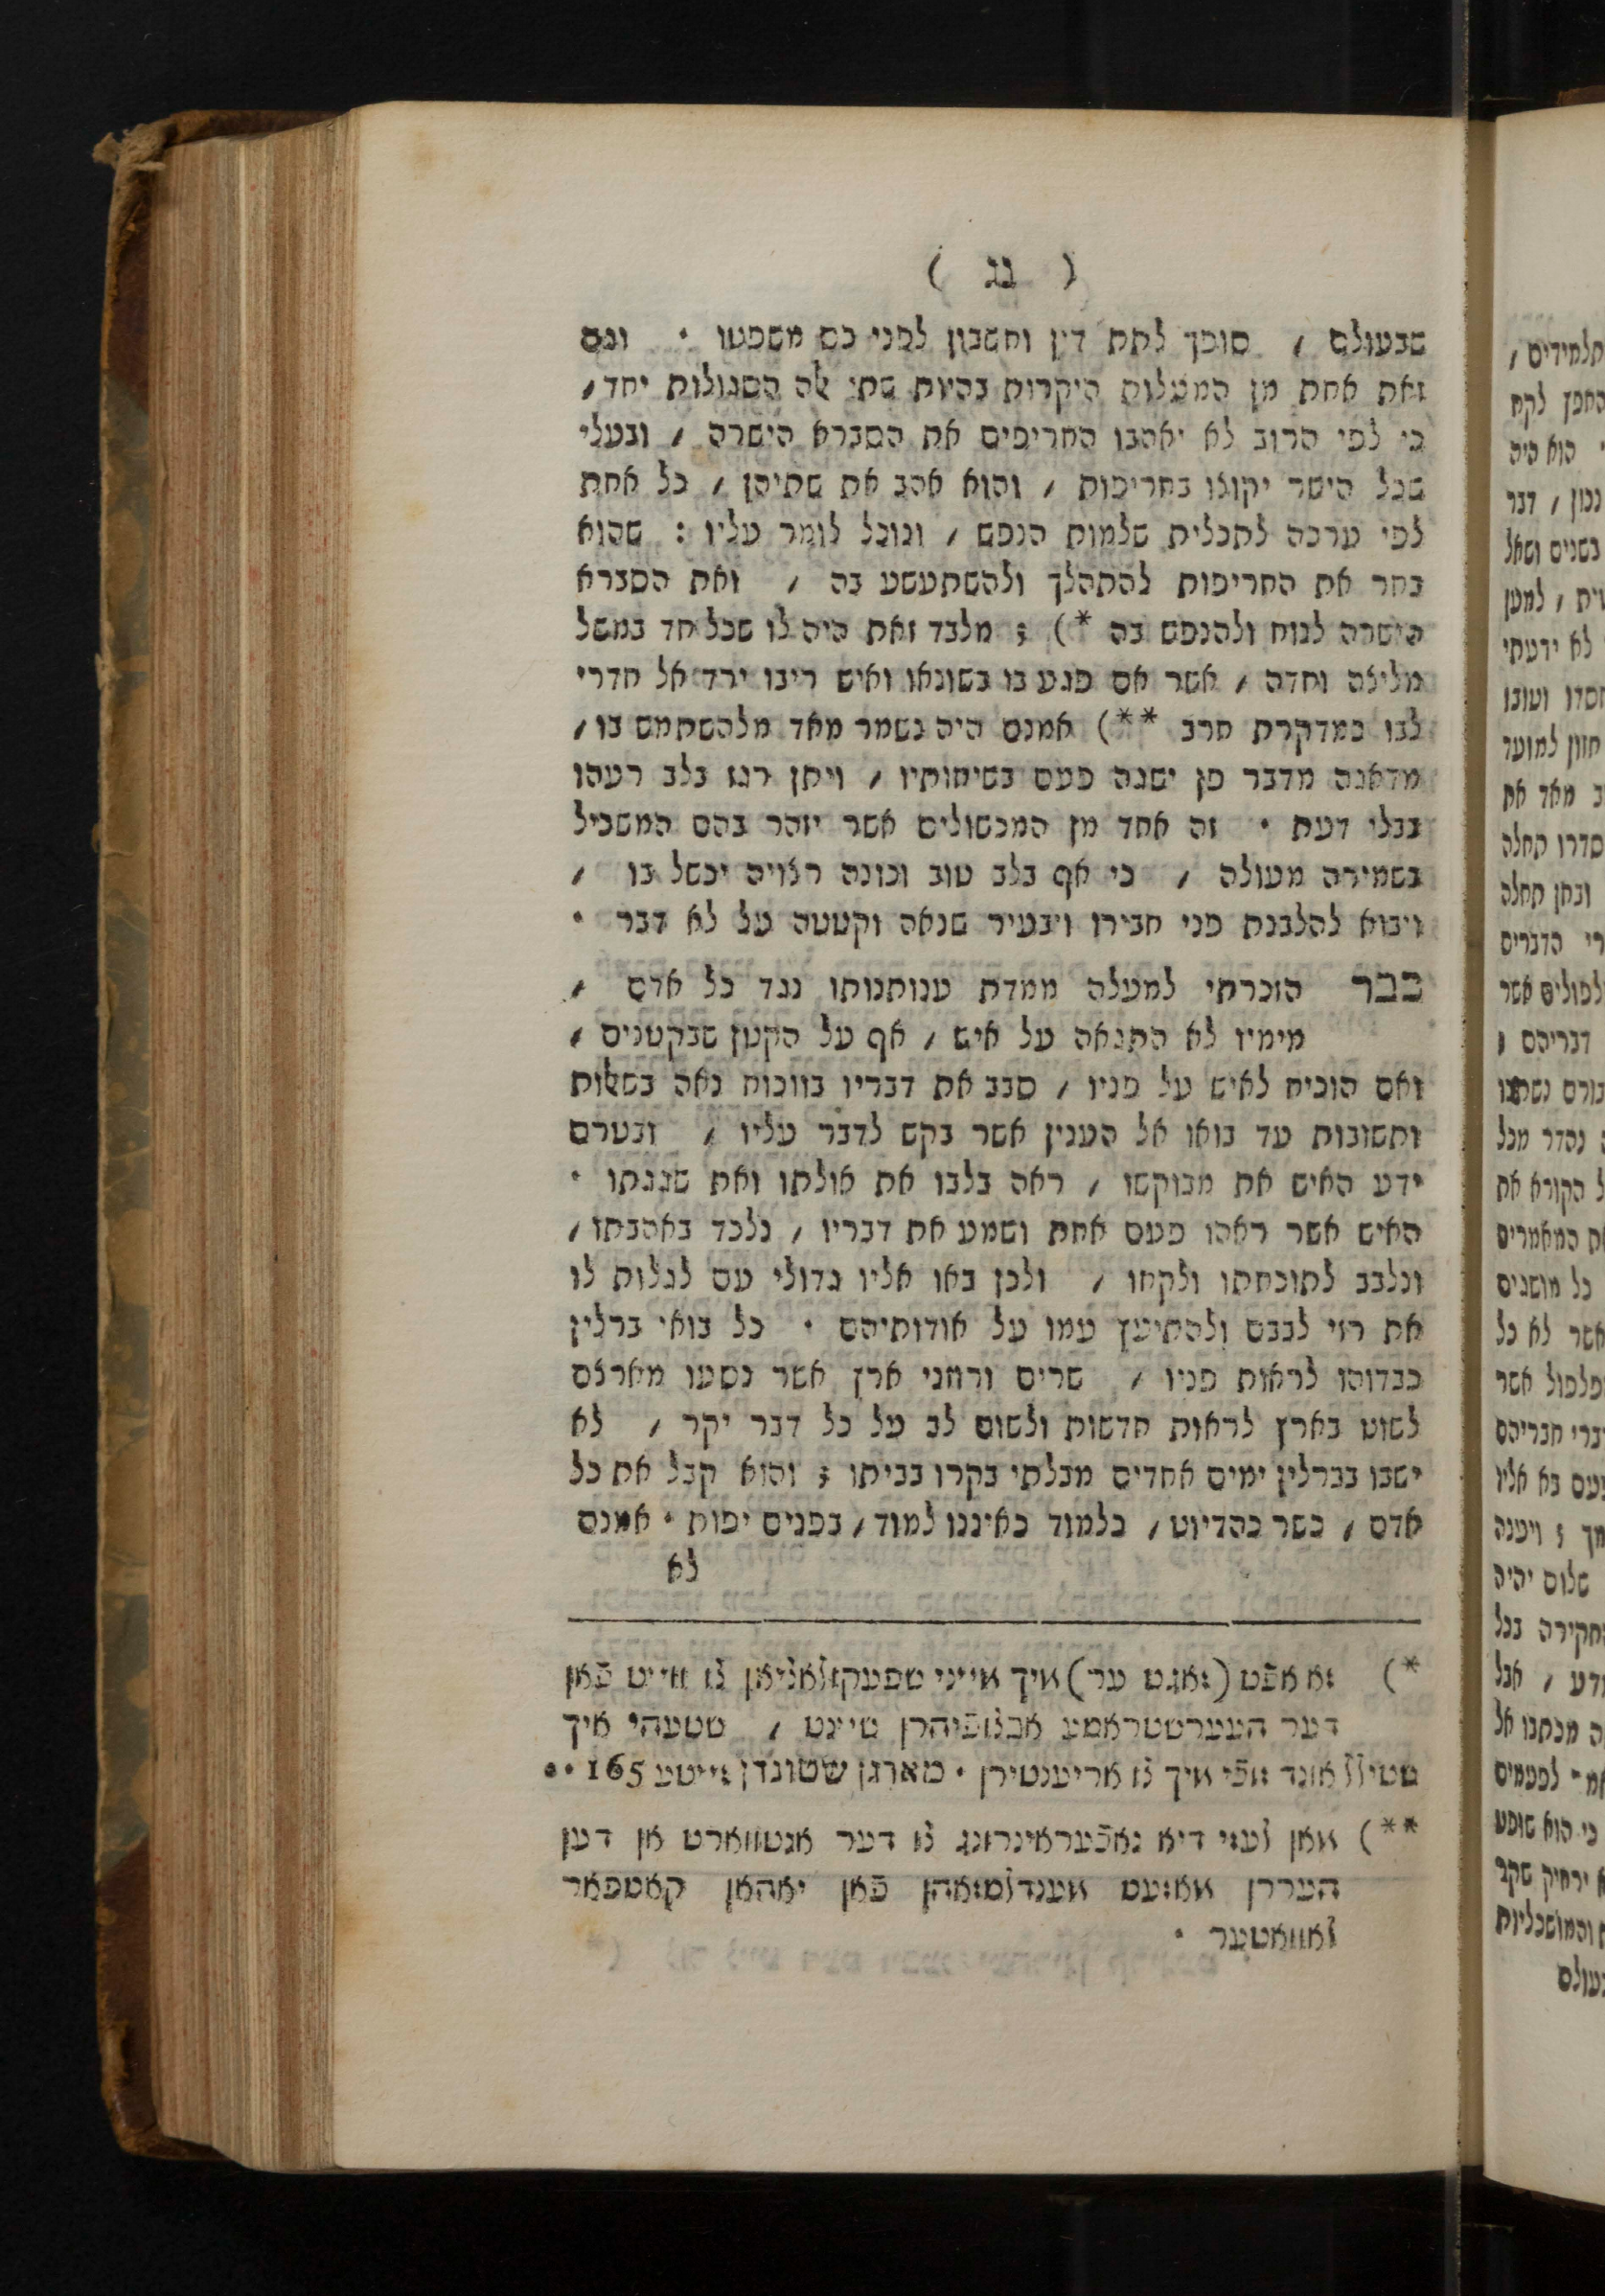 ( נג )
שבעולם / סופך לתת דין וחשבון לפני כס משפטו · וגם
זאת אחת מן המעלות היקרות בהיות שתי אלה הסגולות יחד /
כי לפי הרוב לא יאהבו החריפים את הסברא הישרה / ובעלי
שכל הישר יקוצו בחריפות / והוא אהב את שתיהן / כל אחת
לפי ערכה לתכלית שלמות הנפש / ונוכל לומר עליו : שהוא
בחר את החריפות להתהלך ולהשתעשע בה / ואת הסברא
הישרה לנוח ולהנפש בה *) ; מלבד זאת היה לו שכל חד במשל
מליצה וחדה / אשר אם פגע בו בשונאו ואיש ריבו ירד אל חדרי
לבו כמדקרת חרב **) אמנם היה נשמר מאד מלהשתמש בו /
מדאגה מדבר פן ישגה פעם בשיחותיו / ויתן רגז בלב רעהו
בבלי דעת · זה אחד מן המכשולים אשר יזהר בהם המשכיל
בשמירה מעולה / כי אף בלב טוב וכונה רצויה יכשל בו /
ויבוא להלבנת פני חבירו ויבעיר שנאה וקטטה על לא דבר ·
כבר הזכרתי למעלה ממדת ענותנותו נגד כל אדם /
מימיו לא התגאה על איש / אף על הקטן שבקטנים /
ואם הוכיח לאיש על פניו / סבב את דבריו בווכוח נאה בשאלות
ותשובות עד בואו אל הענין אשר בקש לדבר עליו / ובטרם
ידע האיש את מבוקשו / ראה בלבו את אולתו ואת שגגתו ·
האיש אשר ראהו פעם אחת ושמע את דבריו / נלכד באהבתו /
ונלבב לתוכחתו ולקחו / ולכן באו אליו גדולי עם לגלות לו
את רזי לבבם ולהתיעץ עמו על אודותיהם · כל בואי ברלין
כבדוהו לראות פניו / שרים ורוזני ארץ אשר נסעו מארצם
לשוט בארץ לראות חדשות ולשום לב על כל דבר יקר / לא
ישבו בברלין ימים אחדים מבלתי בקרו בביתו ; והוא קבל את כל
אדם / כשר כהדיוט / כלמוד כאיננו למוד / בפנים יפות · אמנם
לא
*) זא אפֿט (זאגט ער) מיך מייני שפעקולאציאן צו ווייט פֿאן
דער העערשטראסע אבצופֿיהרן שיינט / שטעהי איך
שטילל אונד זוכֿי מיך צו אריענטירן · מארגן שטונדן זייטע 165 ··
**) מאן לעזי דיא נאכֿעראינרונג צו דער אנטווארט אן דען
העררן מאזעס מענדלסזאהן פֿאן יאהאן קאספאר
לאוואטער ·